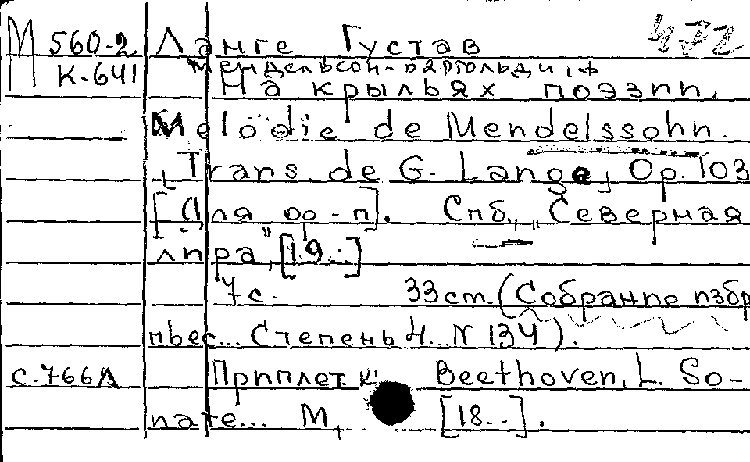 М 560-2 Ланге Густав 472
К-641 Мендельсон-Бартольди, Ф
На крыльях поэзии.
Melodie de Mendelssohn.
Trans. de G. Lange, Op. 103
[Для ор-п]. Спб., „Северная
лира", [19..]
7с. 33cm. (Собрание избр
пьес... Степень 4. N 134).
с.766А Приплет. к: Beethoven, L. So-
nate... М, [18..].